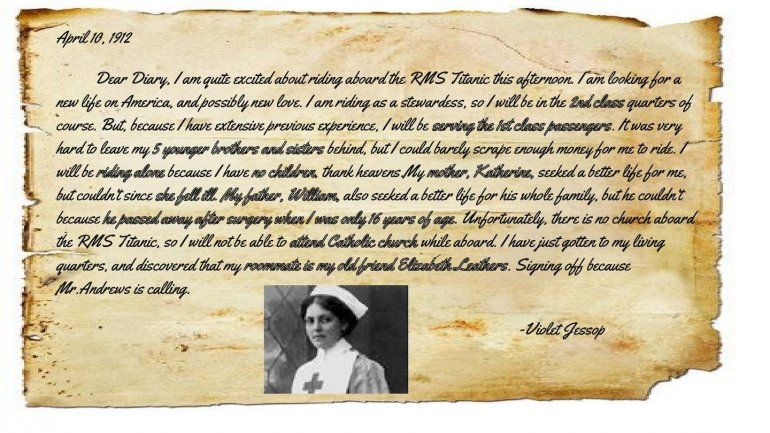 April 10, 1912
Dear Diary, I am quite excited about riding aboard the RMS Titanic this afternoon. I am looking for a
new life on America, and possibly new love. I am riding as a stewardess, so I will be in the 2nd class quarters of
course. But, because I have extensive previous experience, I will be serving the 1st class passengers. It was very
hard to leave my 5 younger brothers and sisters behind, but I could barely scrape enough money for me to ride. I
will be riding alone because I have no children, thank heavens.My mother, Katherine, seeked a better life for me,
but couldn't since she fell ill. My father, William, also seeked a better life for his whole family, but he couldn't
because he passed away after surgery when I was only 16 years of age. Unfortunately, there is no church aboard
the RMS Titanic, so I will not be able to attend Catholic church while aboard. I have just gotten to my living
quarters, and discovered that my roommate is my old friend Elizabeth Leathers. Signing off because
Mr.Andrews is calling.
-Violet Jessop